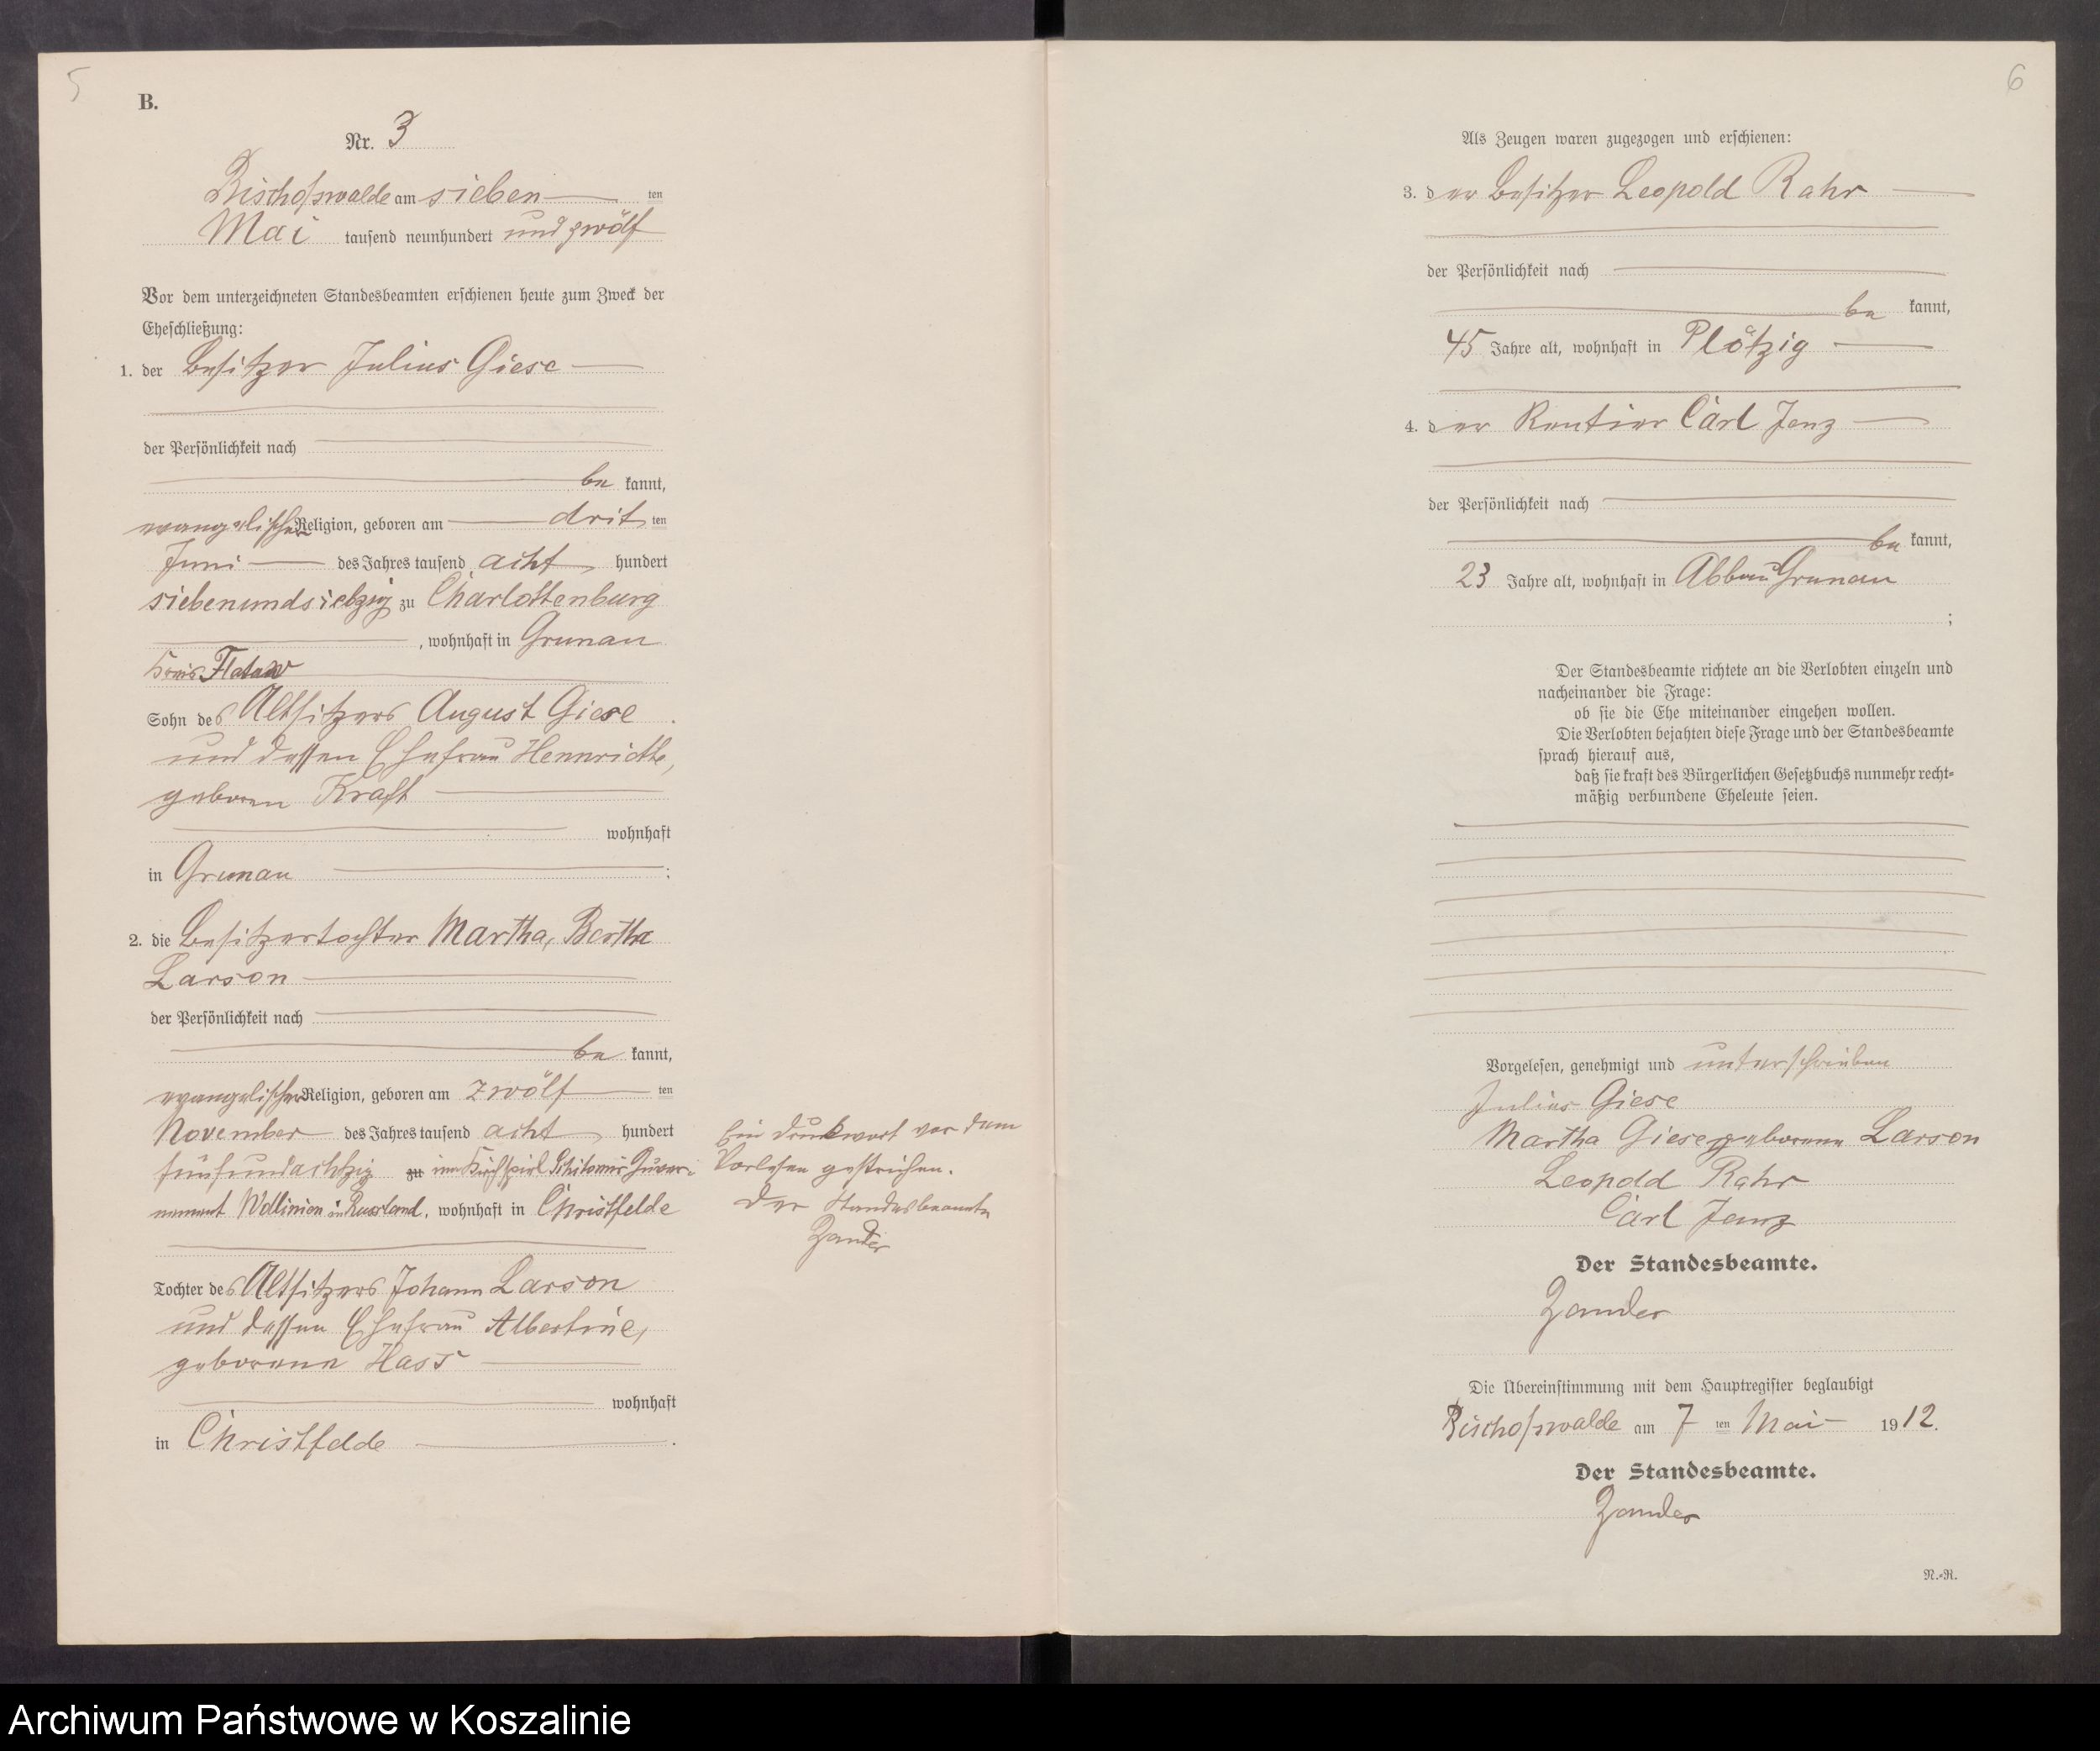 5
B.
Nr. 3
Bischofswalde am sieben ten
Mai tausend neunhundert und zwölf
Vor dem unterzeichneten Standesbeamten erschienen heute zum Zweck der
Eheschließung:
1. der Besitzer Julius Giese
der Persönlichkeit nach
be kannt,
evangelischer Religion, geboren am drit ten
Juni des Jahres tausend acht hundert
siebenundsiebzig zu Charlottenburg
, wohnhaft in Grunau
Kreis Flatow
Sohn des Altsitzers August Giese
und dessen Ehefrau Hennriette,
geboren Kraft
wohnhaft
in Grunau ;
2. die Besitzertochter Martha, Bertha
Larson
der Persönlichkeit nach
be kannt,
evangelischer Religion, geboren am zwölf ten
November des Jahres tausend acht hundert
fünfundachtzig zu im Kirchspiel Schitomir Guver-
nement Wollinien in Russland, wohnhaft in Christfelde
Tochter des Altsitzers Johann Larson
und dessen Ehefrau Albertine,
geborene Hass
wohnhaft
in Christfelde .
Ein Druckwort vor dem
Vorlesen gestrichen.
Der Standesbeamte
Zander
6
Als Zeugen waren zugezogen und erschienen:
3. der Besitzer Leopold Rahr
der Persönlichkeit nach
be kannt,
45 Jahre alt, wohnhaft in Plötzig
4. der Rentier Carl Jenz
der Persönlichkeit nach
be kannt,
23 Jahre alt, wohnhaft in Abbau Grunau
;
Der Standesbeamte richtete an die Verlobten einzeln und
nacheinander die Frage:
ob sie die Ehe miteinander eingehen wollen.
Die Verlobten bejahten diese Frage und der Standesbeamte
sprach hierauf aus,
daß sie kraft des Bürgerlichen Gesetzbuchs nunmehr recht-
mäßig verbundene Eheleute seien.
Vorgelesen, genehmigt und unterschrieben
Julius Giese
Martha Giese geborene Larson
Leopold Rahr
Carl Jenz
Der Standesbeamte.
Zander
Die Übereinstimmung mit dem Hauptregister beglaubigt
Bischofswalde am 7 ten Mai 1912.
Der Standesbeamte.
Zander
N.-R.
Archiwum Państwowe w Koszalinie